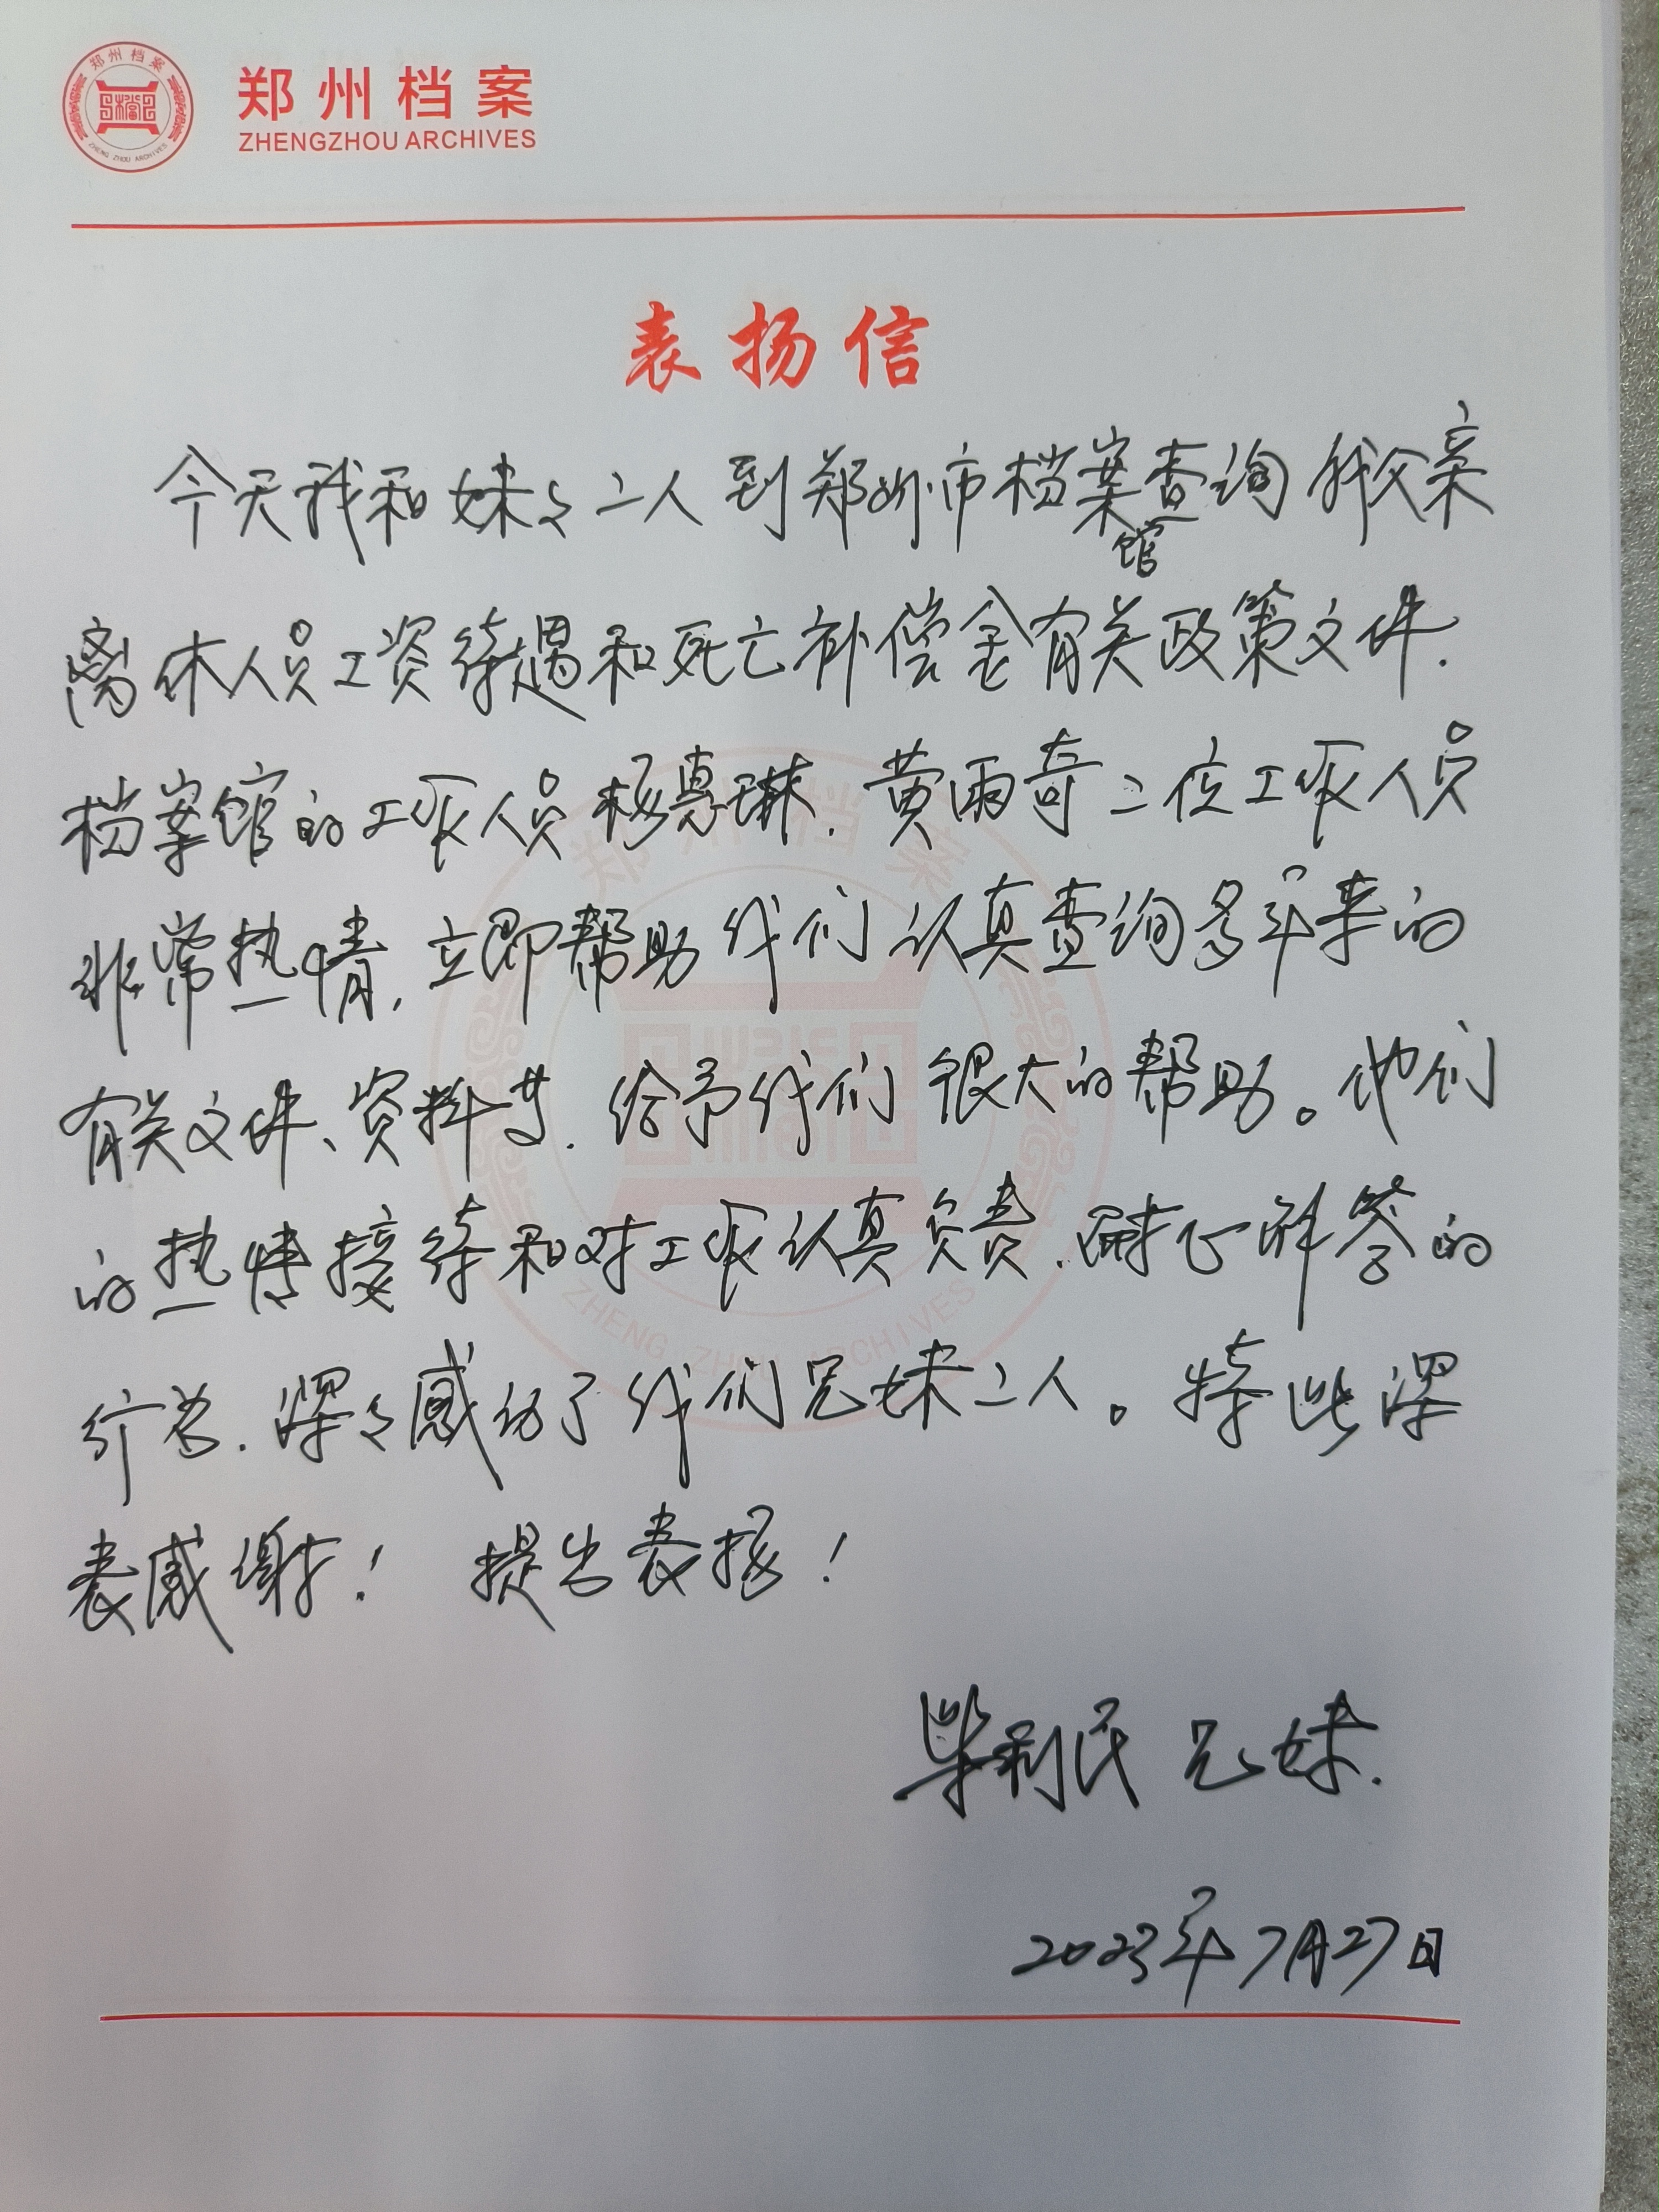 郑州档案
ZHENGZHOU ARCHIVES
表扬信
今天我和妹々二人到郑州市档案馆查询我父亲
离休人员工资待遇和死亡补偿金有关政策文件.
档案馆的工作人员 惠琳.黄雨奇二位工作人员
非常热情,立即帮助我们认真查询多年来的
有关文件、资料等.给予我们很大的帮助。他们
的热情接待和对工作认真负责.耐心解答的
行为.深々感动了我们兄妹二人。特此深
表感谢! 提出表扬!
毕利民兄妹.
2023年7月27日
郑州档案
ZHENG ZHOU ARCHIVES